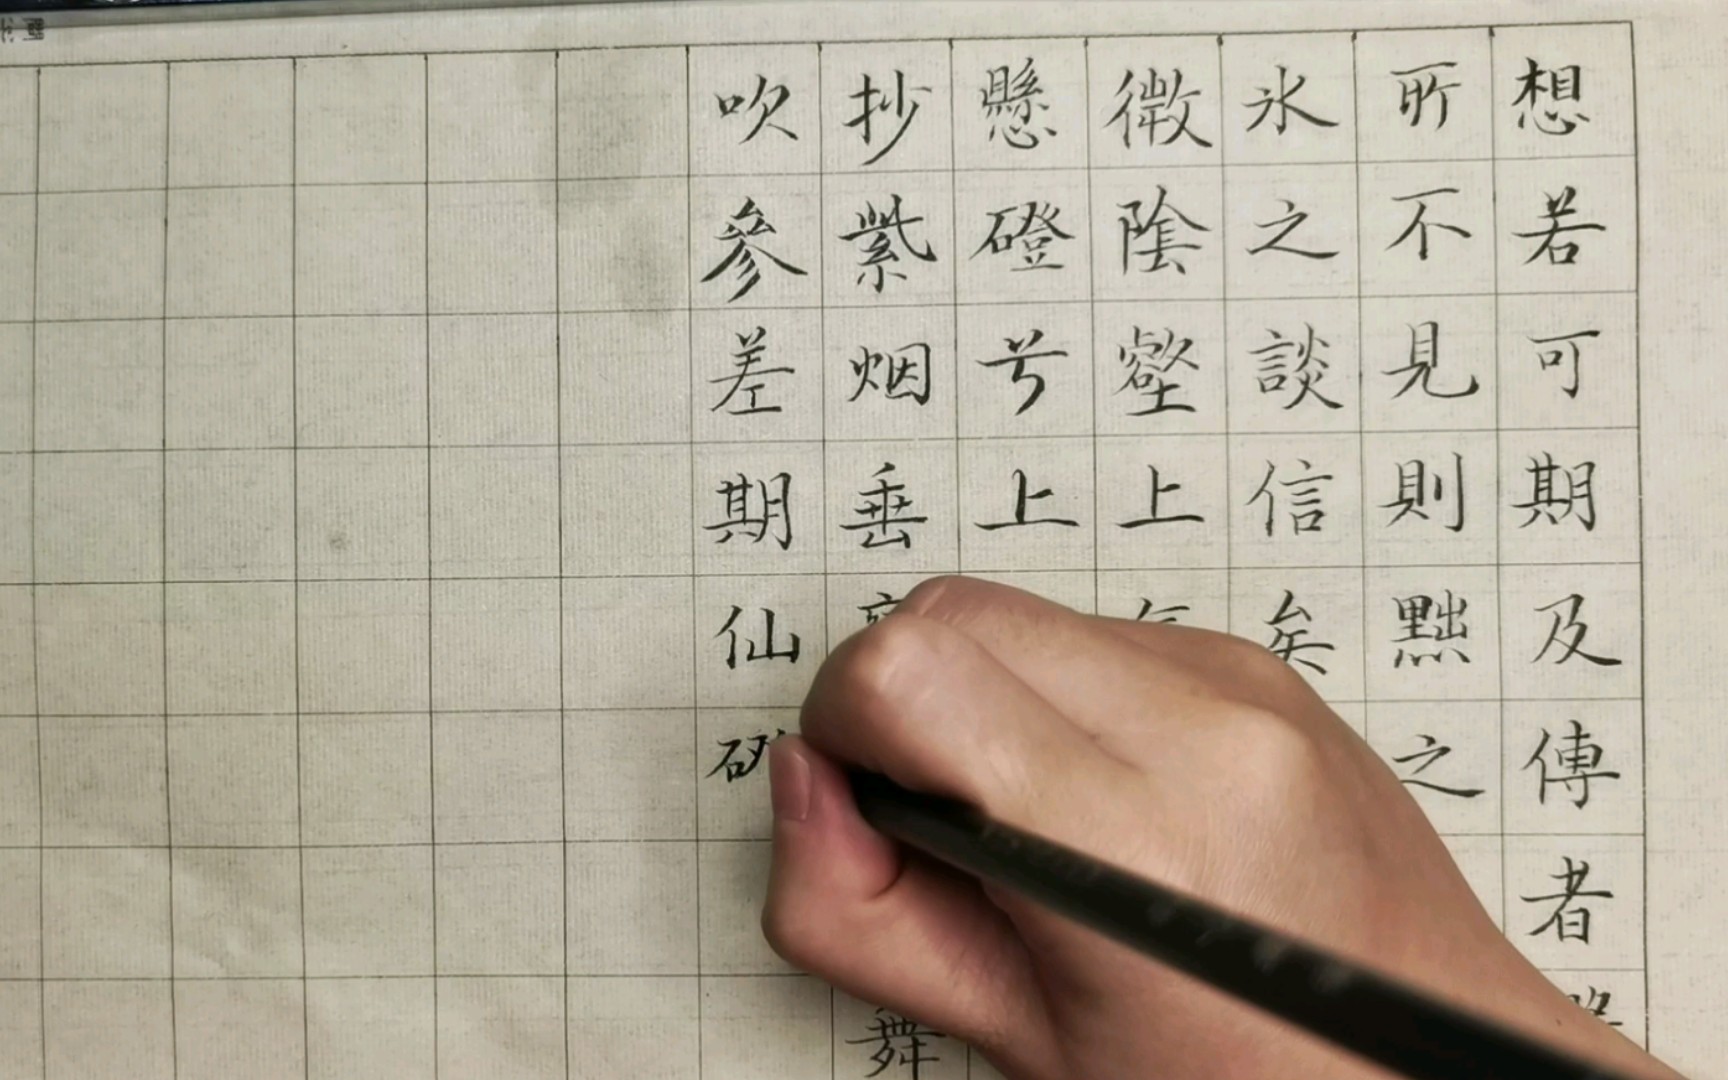 想若可期及傳者
所不見則黜之
氷之談信矣
微陰壑上氣
懸磴兮上
抄紫烟垂舞
吹參差期仙